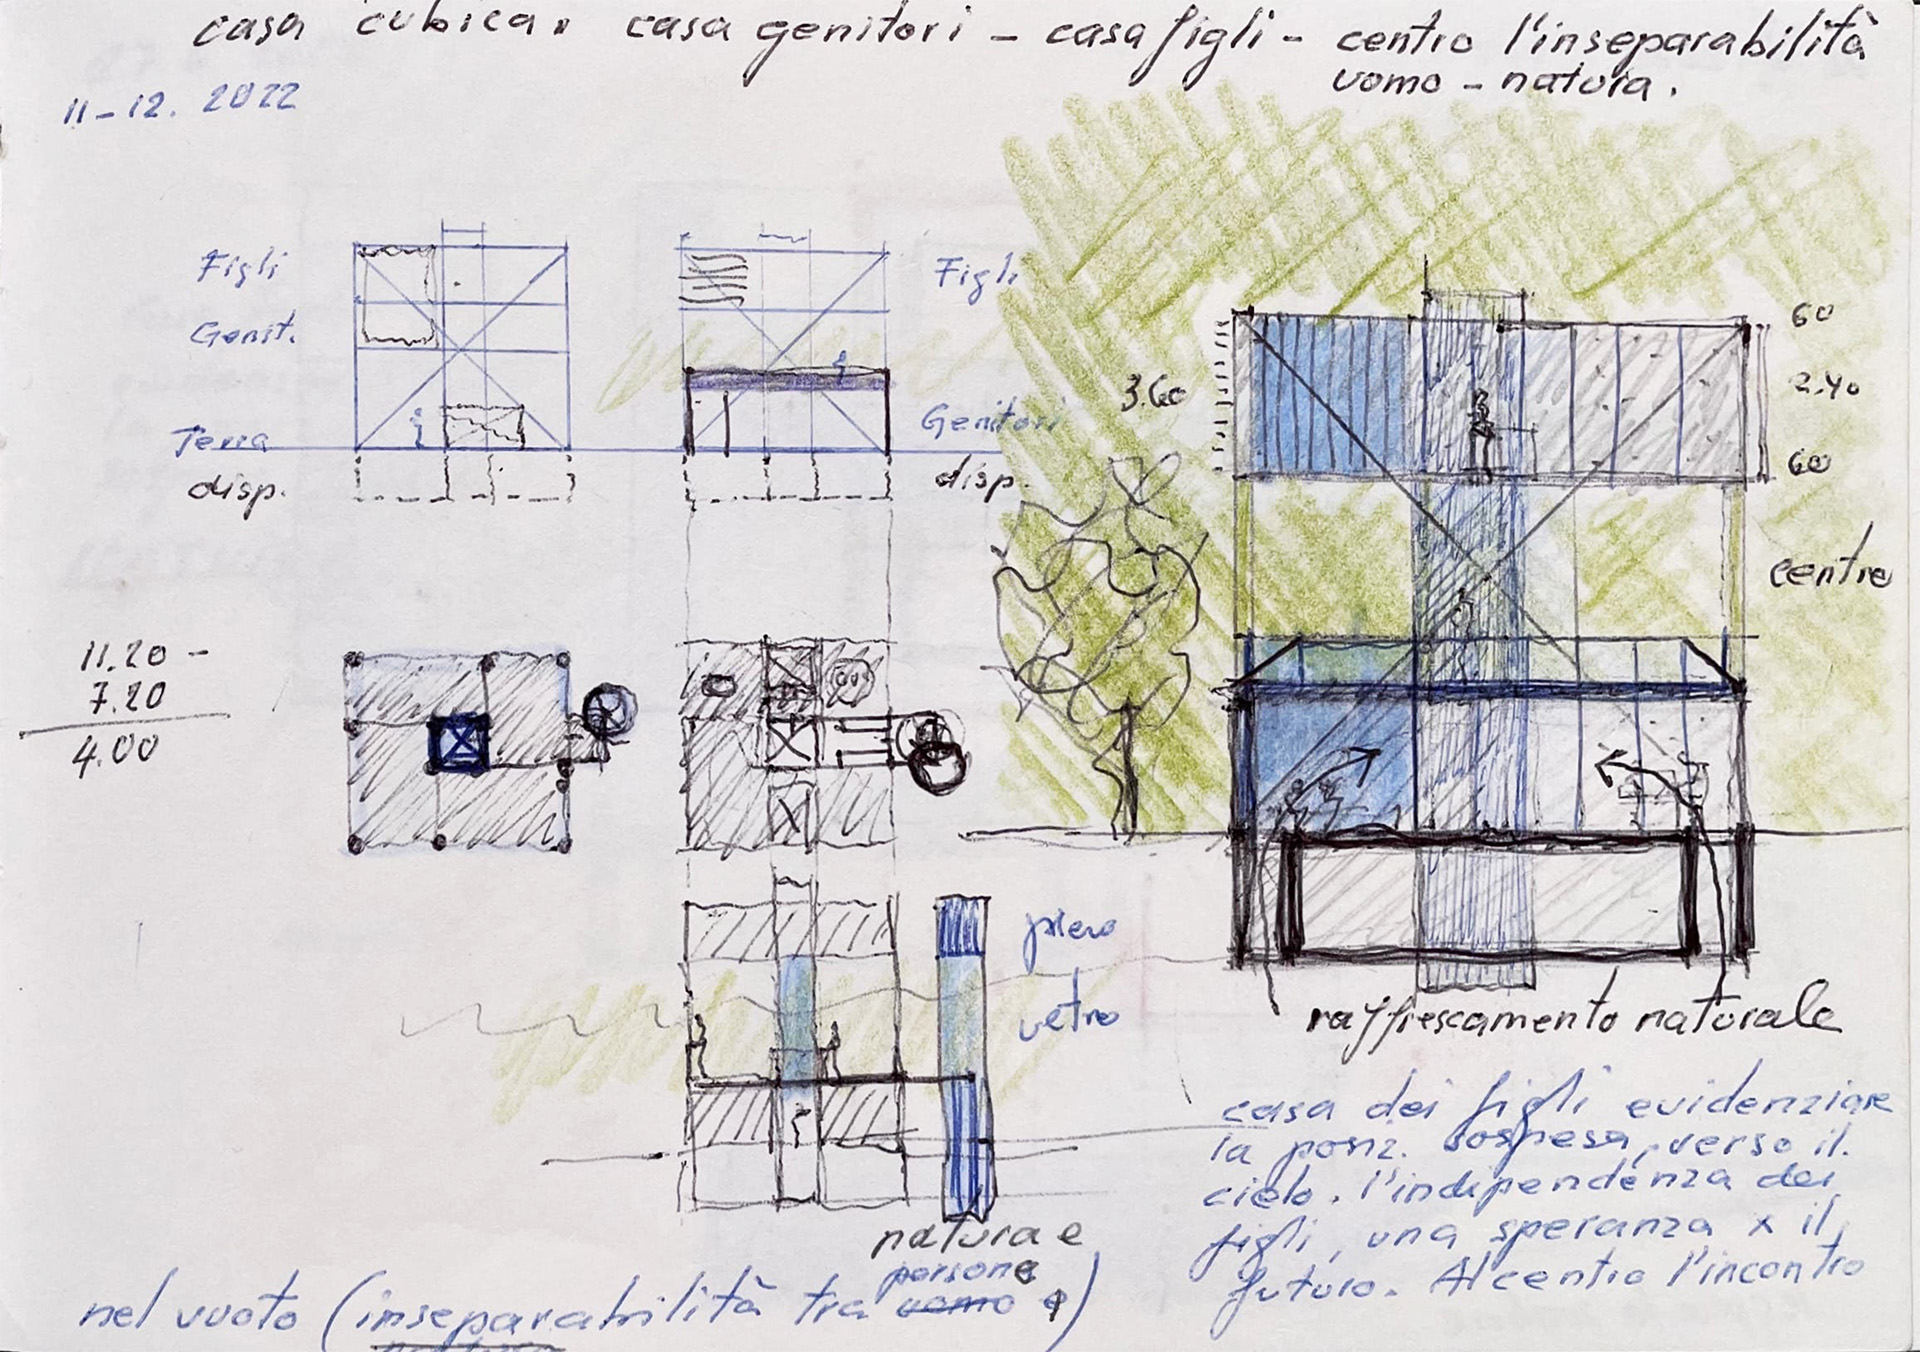 casa cubica. casa genitori - casa figli - centro l'inseparabilità
uomo - natura.
11-12. 2022
Figli
Genit.
Terra
disp.
Figli
Genitori
disp.
3.60
60
2.40
60
centro
11.20 -
7.20
4.00
OUT
pieno
vetro
raffrescamento naturale
casa dei figli evidenziare
la posiz. sospesa, verso il
cielo. l'indipendenza dei
figli, una speranza x il
futuro. Al centro l'incontro
natura e
persone
nel vuoto (inseparabilità tra uomo e)
natura